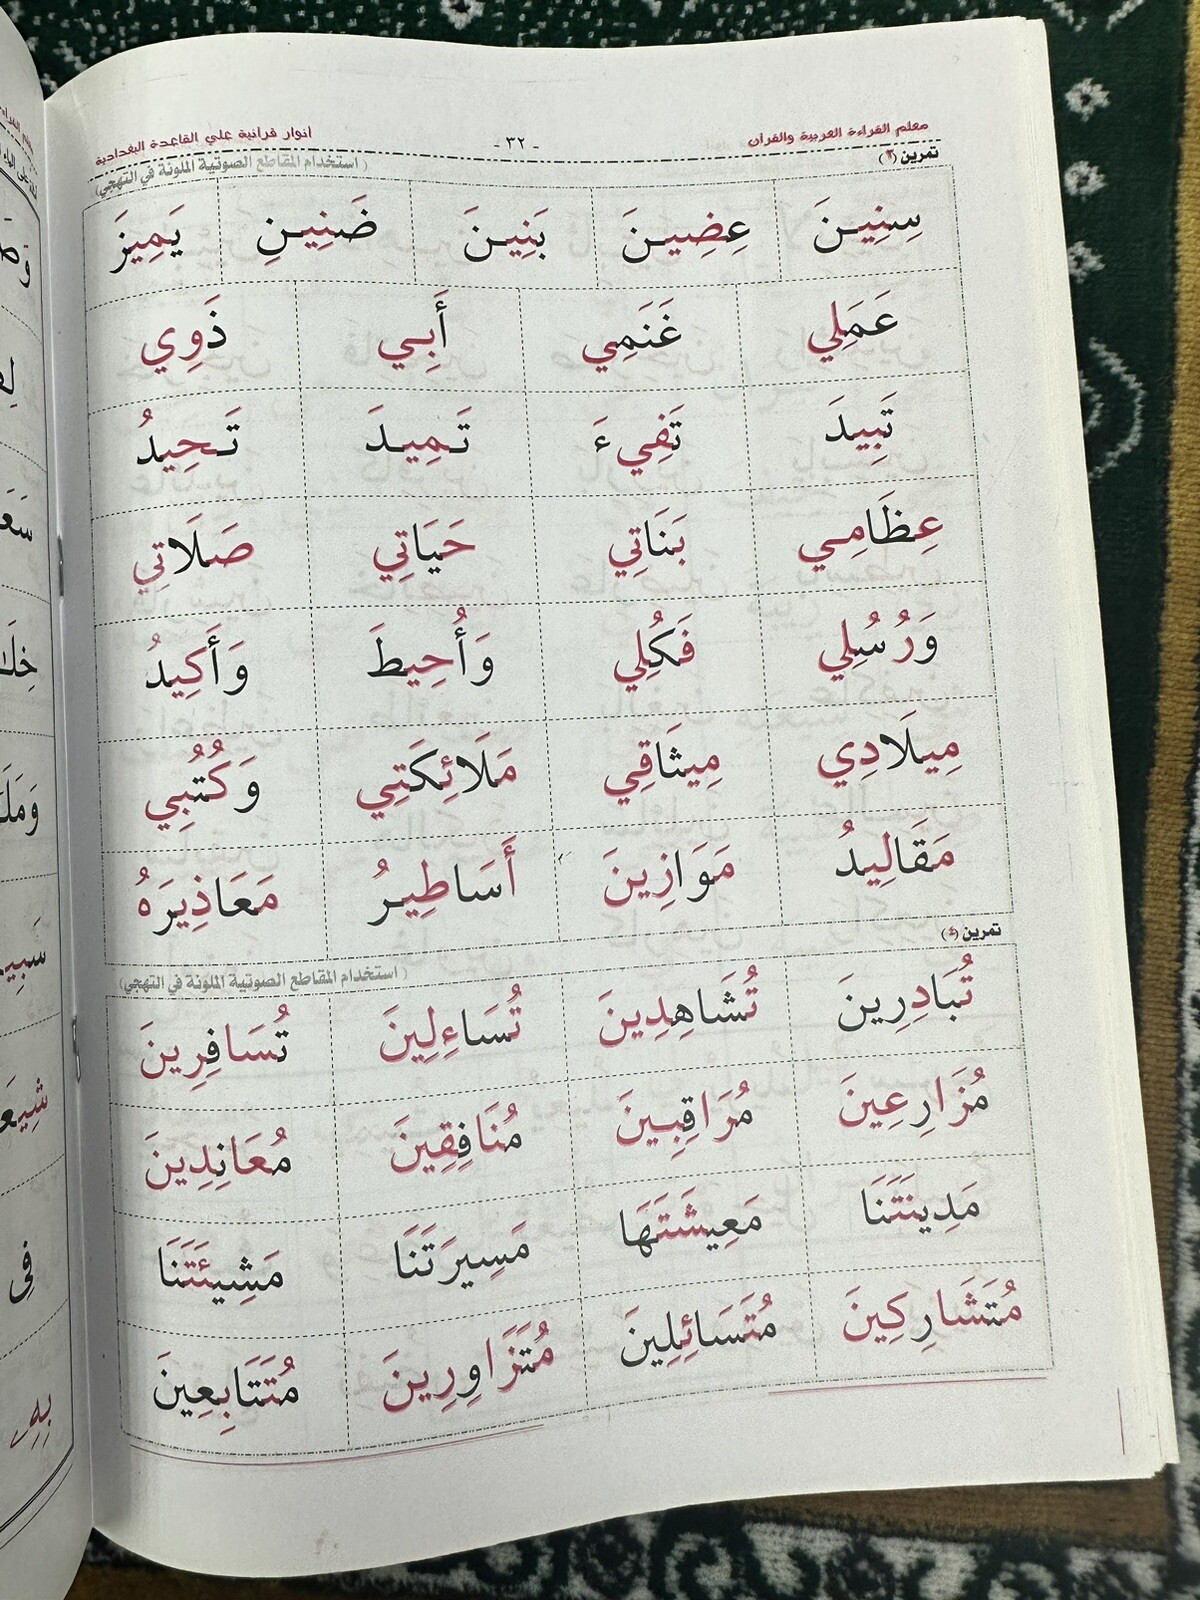 معلم القراءة العربية والقرآن - ٣٢ - انوار قرآنية علي القاعدة البغدادية
تمرين (٣) (استخدام المقاطع الصوتية الملونة في التهجي)
سِنِينَ عِضِينَ بَنِينَ ضَنِينِ يَمِيزَ
عَمَلِي غَنَمِي أَبِي ذَوِي
تَبِيدَ تَفِيءَ تَمِيدَ تَحِيدُ
عِظَامِي بَنَاتِي حَيَاتِي صَلَاتِي
وَرُسُلِي فَكُلِي وَأُحِيطَ وَأَكِيدُ
مِيلَادِي مِيثَاقِي مَلَائِكَتِي وَكُتُبِي
مَقَالِيدُ مَوَازِينَ أَسَاطِيرُ مَعَاذِيرَهُ
تمرين (٤)
(استخدام المقاطع الصوتية الملونة في التهجي)
تُبَادِرِينَ تُشَاهِدِينَ تُسَاءِلِينَ تُسَافِرِينَ
مُزَارِعِينَ مُرَاقِبِينَ مُنَافِقِينَ مُعَانِدِينَ
مَدِينَتَنَا مَعِيشَتَهَا مَسِيرَتَنَا مَشِيئَتَنَا
مُتَشَارِكِينَ مُتَسَائِلِينَ مُتَزَاوِرِينَ مُتَتَابِعِينَ